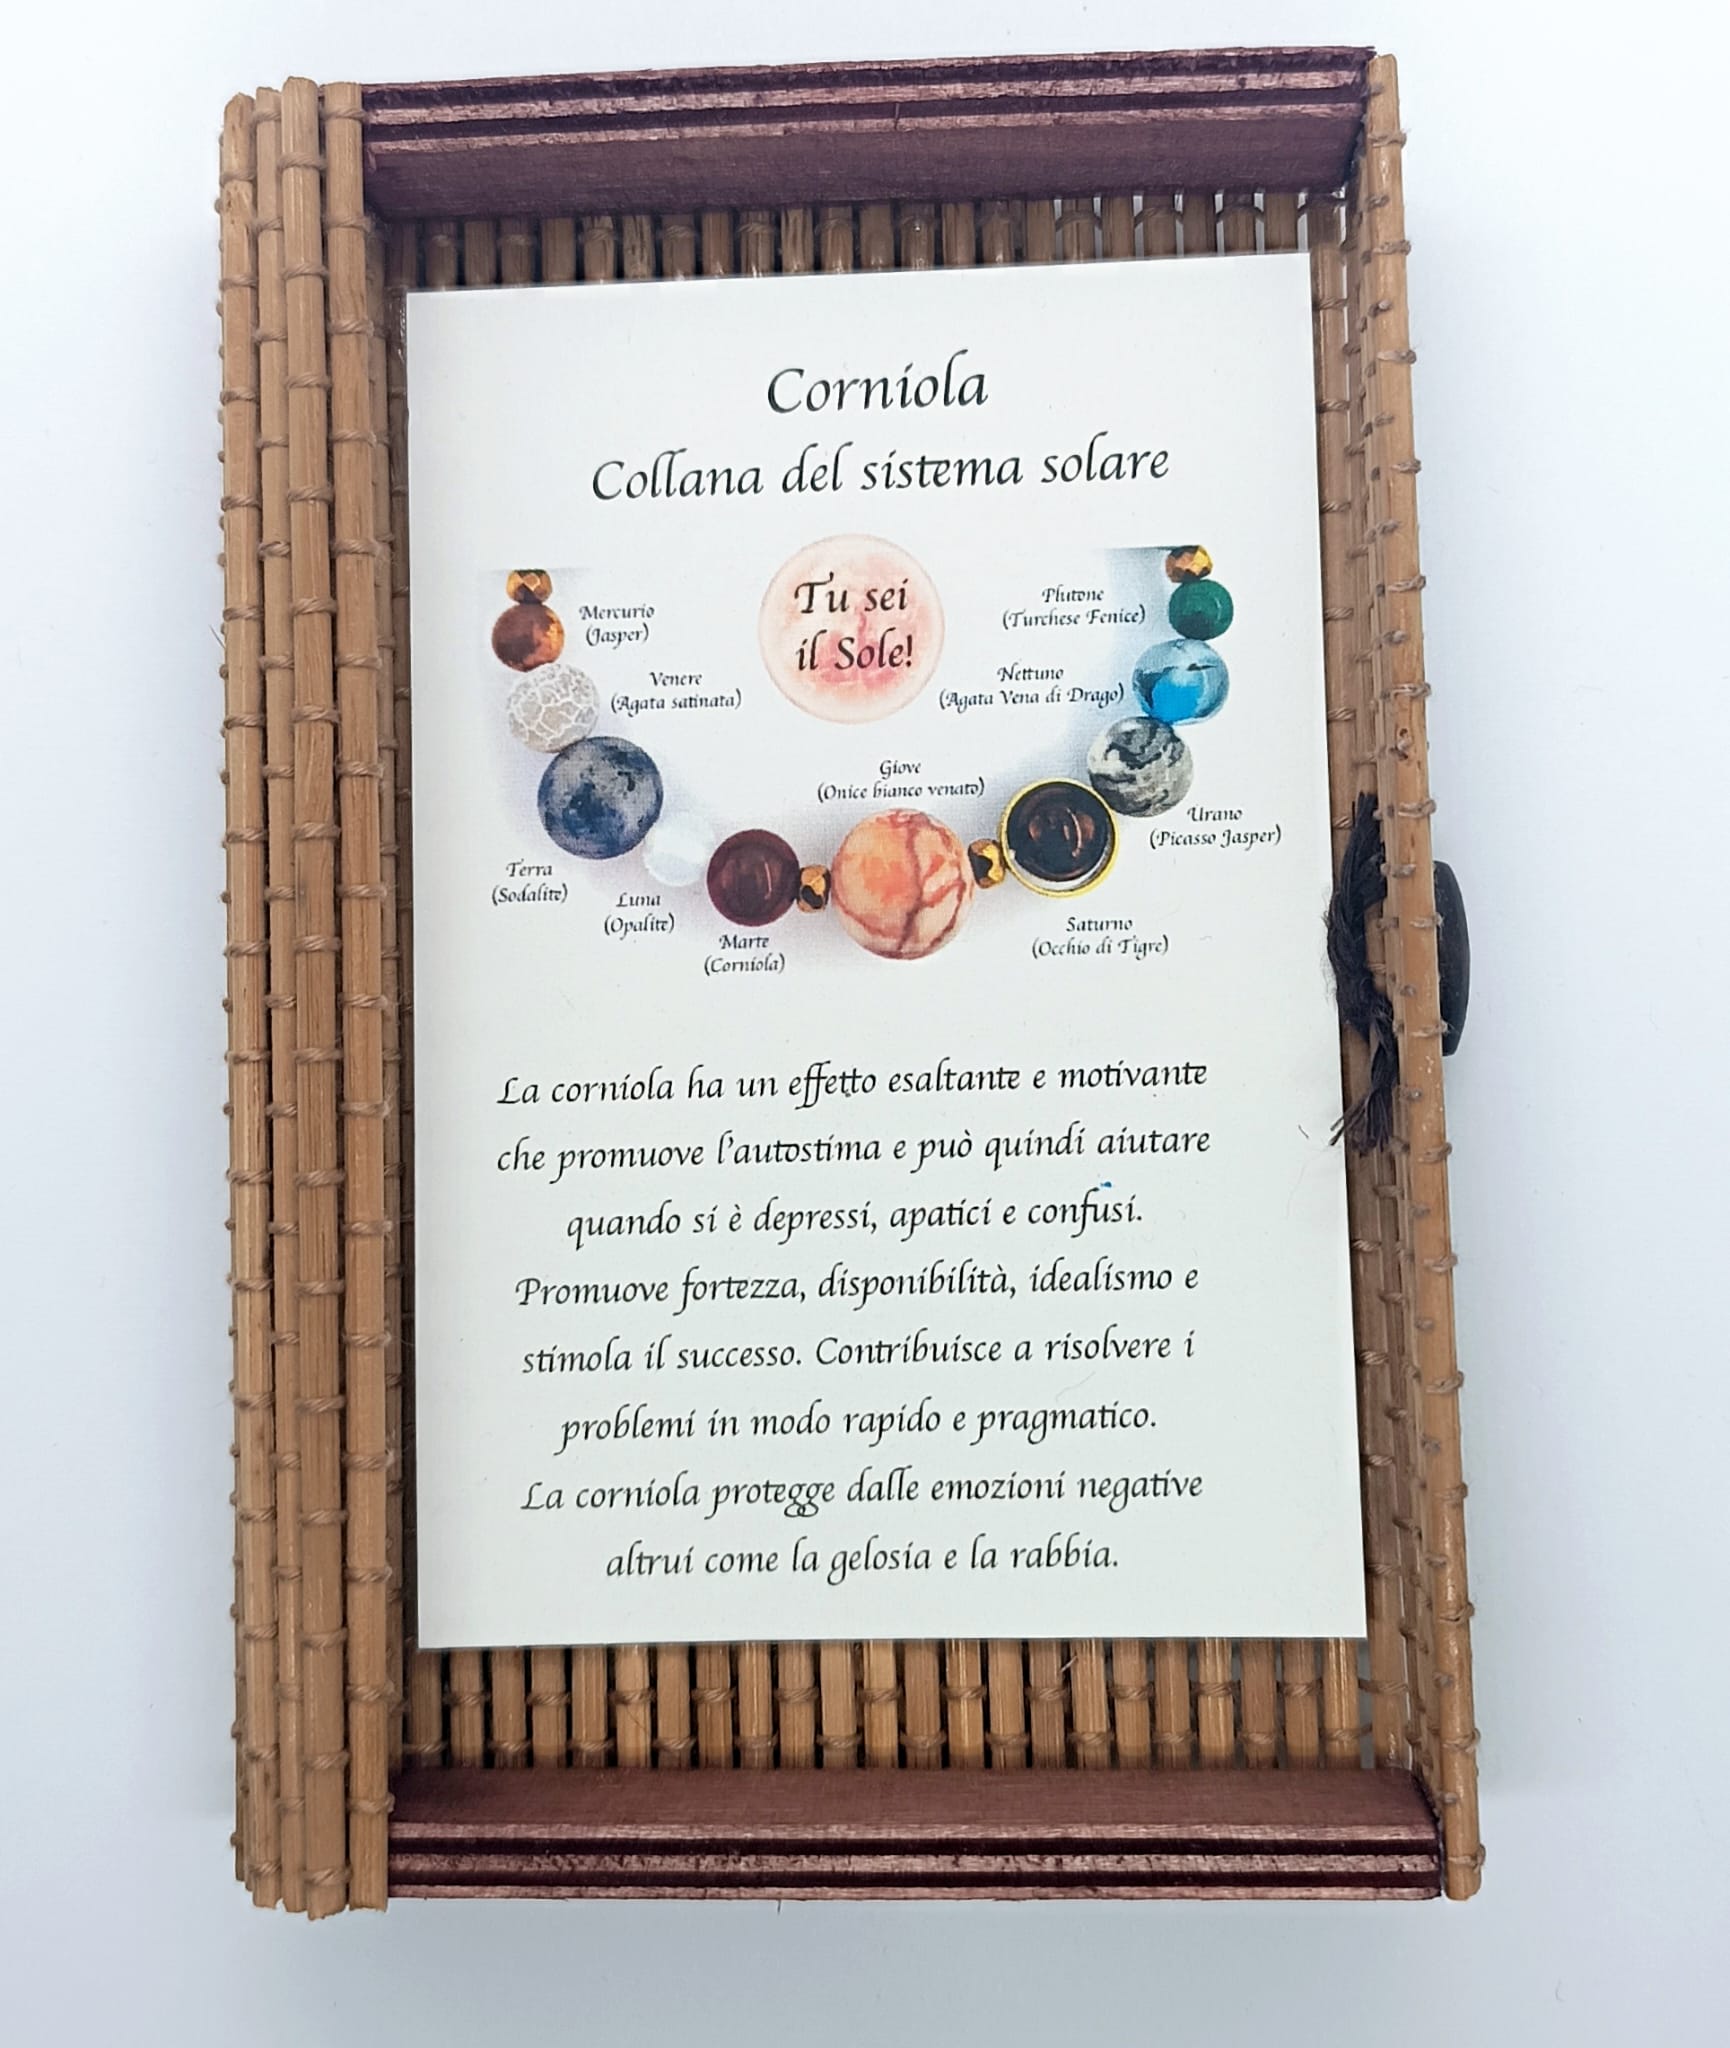 Corniola
Collana del sistema solare
Tu sei
il Sole!
Mercurio
(Jasper)
Venere
(Agata satinata)
Terra
(Sodalite)
Luna
(Opalite)
Marte
(Corniola)
Giove
(Onice bianco venato)
Saturno
(Occhio di Tigre)
Urano
(Picasso Jasper)
Nettuno
(Agata Vena di Drago)
Plutone
(Turchese Fenice)
La corniola ha un effetto esaltante e motivante
che promuove l'autostima e può quindi aiutare
quando si è depressi, apatici e confusi.
Promuove fortezza, disponibilità, idealismo e
stimola il successo. Contribuisce a risolvere i
problemi in modo rapido e pragmatico.
La corniola protegge dalle emozioni negative
altrui come la gelosia e la rabbia.